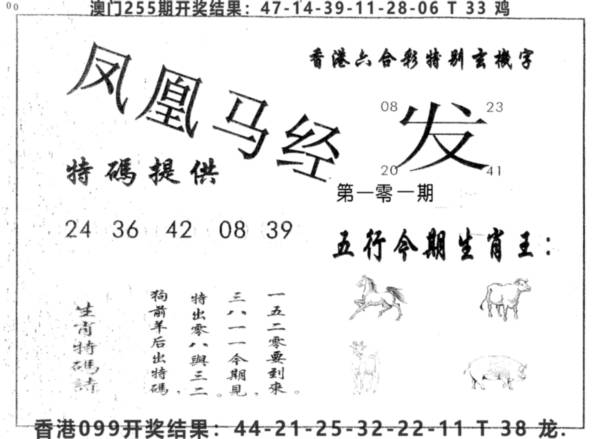 澳门255期开奖结果：47-14-39-11-28-06 T 33 鸡
香港六合彩特别玄機字
凤凰马经
08 23
发
20 41
特碼提供
第一零一期
24 36 42 08 39
五行今期生肖王：
一五二零要到來
三八一一今期見，
特出零八與三二。
狗前羊后出特碼，
生肖特碼詩
香港099开奖结果：44-21-25-32-22-11 T 38 龙.